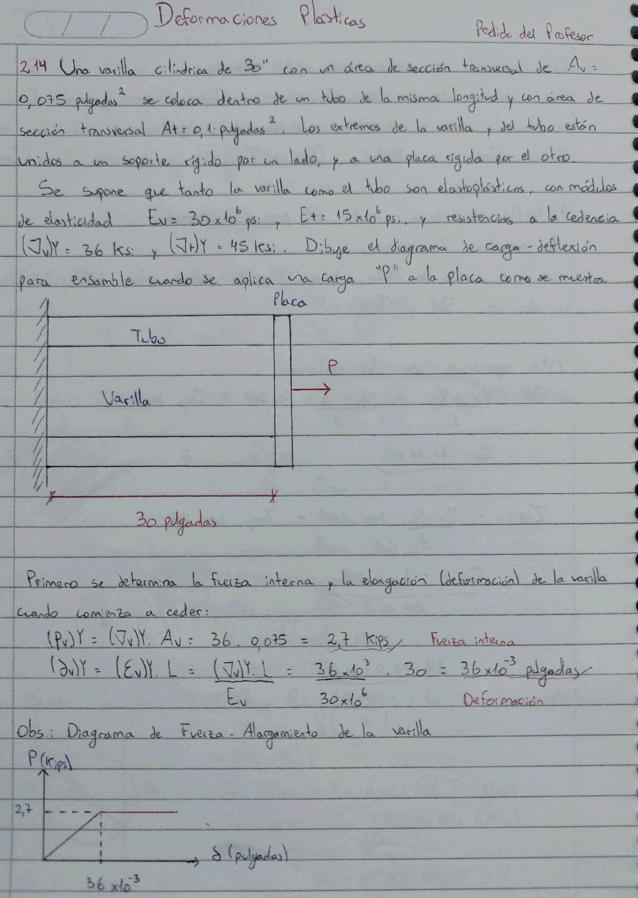 Deformaciones Plásticas
Pedido del Profesor
2.14 Una varilla cilíndrica de 30" con un área de sección transversal de Av =
0,075 pulgadas² se coloca dentro de un tubo de la misma longitud y con área de
sección transversal At = 0,1 pulgadas². Los extremos de la varilla y del tubo están
unidos a un soporte rígido por un lado, y a una placa rígida por el otro.
Se supone que tanto la varilla como el tubo son elastoplásticos, con módulos
de elasticidad Ev = 30x10⁶ psi y Et = 15x10⁶ psi y resistencias a la cedencia
(σv)Y = 36 Ksi y (σt)Y = 45 Ksi. Dibuje el diagrama de carga-deflexión
para ensamble cuando se aplica una carga "P" a la placa como se muestra
Placa
Tubo
P
Varilla
30 pulgadas
Primero se determina la fuerza interna y la elongación (deformación) de la varilla
cuando comienza a ceder:
(Pv)Y = (σv)Y. Av = 36 . 0,075 = 2,7 Kips Fuerza interna
(δv)Y = (Ev)Y. L = (σv)Y. L / Ev = 36x10³ / 30x10⁶ . 30 = 36x10⁻³ pulgadas
Deformación
Obs: Diagrama de Fuerza - Alargamiento de la varilla
P (Kips)
2,7
δ (pulgadas)
36 x10⁻³